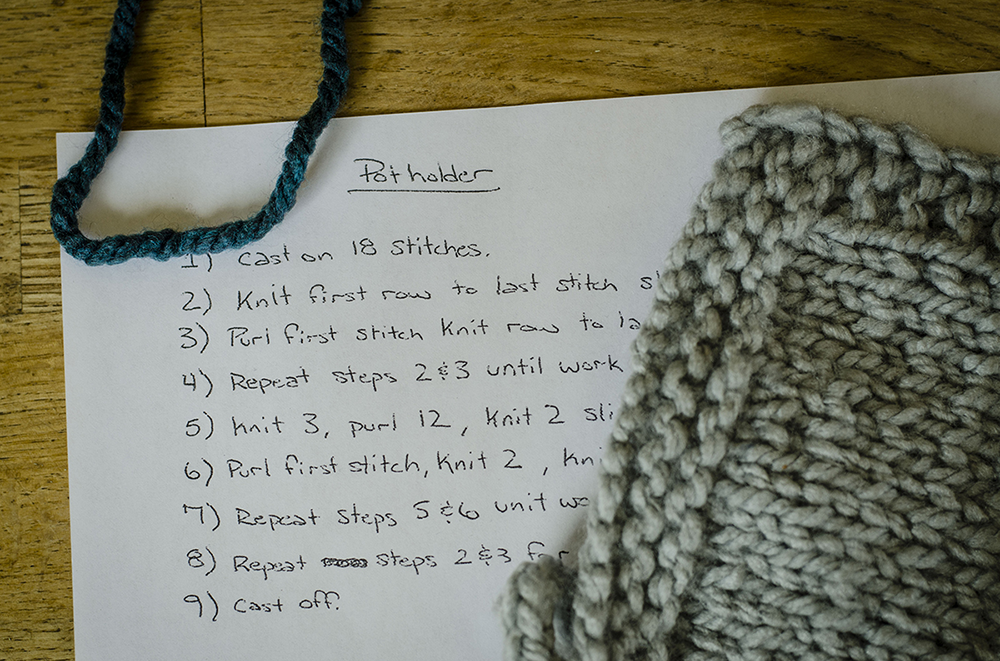 Pot holder
1) Cast on 18 stitches.
2) Knit first row to last stitch
3) Purl first stitch Knit row to
4) Repeat steps 2 & 3 until work
5) Knit 3, purl 12, Knit 2
6) Purl first stitch, Knit 2,
7) Repeat steps 5 & 6 unit
8) Repeat steps 2 & 3
9) Cast off.